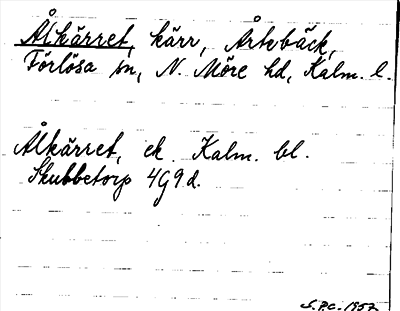 Ålkärret, kärr, Årtebäck,
Förlösa sn, N. Möre hd, Kalm. l.
Ålkärret, ek. Kalm. bl.
Skubbetorp 4G9d.
S.P.C. 1957